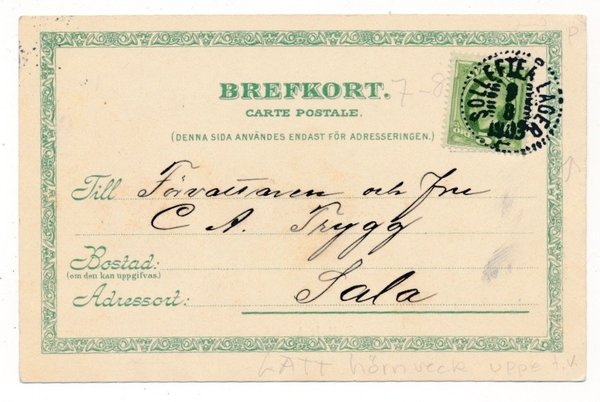 BREFKORT.
CARTE POSTALE.
(DENNA SIDA ANVÄNDES ENDAST FÖR ADRESSERINGEN.)
SOLLEFTEÅ LÄGER
1905
7-8
Till Förvaltaren och Fru
C A. Trygg
Bostad:
(om den kan uppgifvas.)
Adressort: Sala
LÄTT hörnveck uppe t.v.